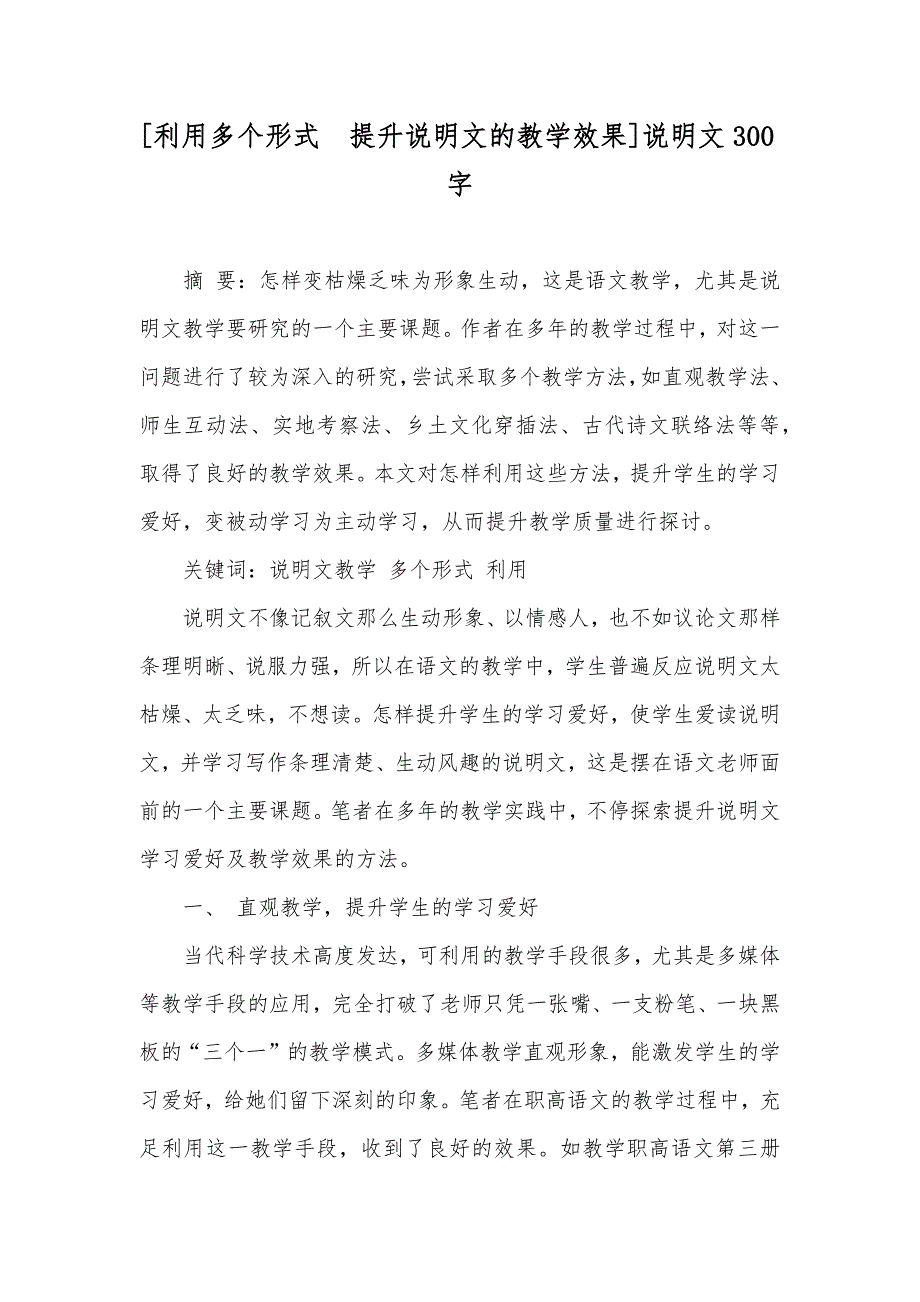 [利用多个形式　提升说明文的教学效果]说明文300
字
摘 要：怎样变枯燥乏味为形象生动，这是语文教学，尤其是说
明文教学要研究的一个主要课题。作者在多年的教学过程中，对这一
问题进行了较为深入的研究，尝试采取多个教学方法，如直观教学法、
师生互动法、实地考察法、乡土文化穿插法、古代诗文联络法等等，
取得了良好的教学效果。本文对怎样利用这些方法，提升学生的学习
爱好，变被动学习为主动学习，从而提升教学质量进行探讨。
关键词：说明文教学 多个形式 利用
说明文不像记叙文那么生动形象、以情感人，也不如议论文那样
条理明晰、说服力强，所以在语文的教学中，学生普遍反应说明文太
枯燥、太乏味，不想读。怎样提升学生的学习爱好，使学生爱读说明
文，并学习写作条理清楚、生动风趣的说明文，这是摆在语文老师面
前的一个主要课题。笔者在多年的教学实践中，不停探索提升说明文
学习爱好及教学效果的方法。
一、 直观教学，提升学生的学习爱好
当代科学技术高度发达，可利用的教学手段很多，尤其是多媒体
等教学手段的应用，完全打破了老师只凭一张嘴、一支粉笔、一块黑
板的“三个一”的教学模式。多媒体教学直观形象，能激发学生的学
习爱好，给她们留下深刻的印象。笔者在职高语文的教学过程中，充
足利用这一教学手段，收到了良好的效果。如教学职高语文第三册